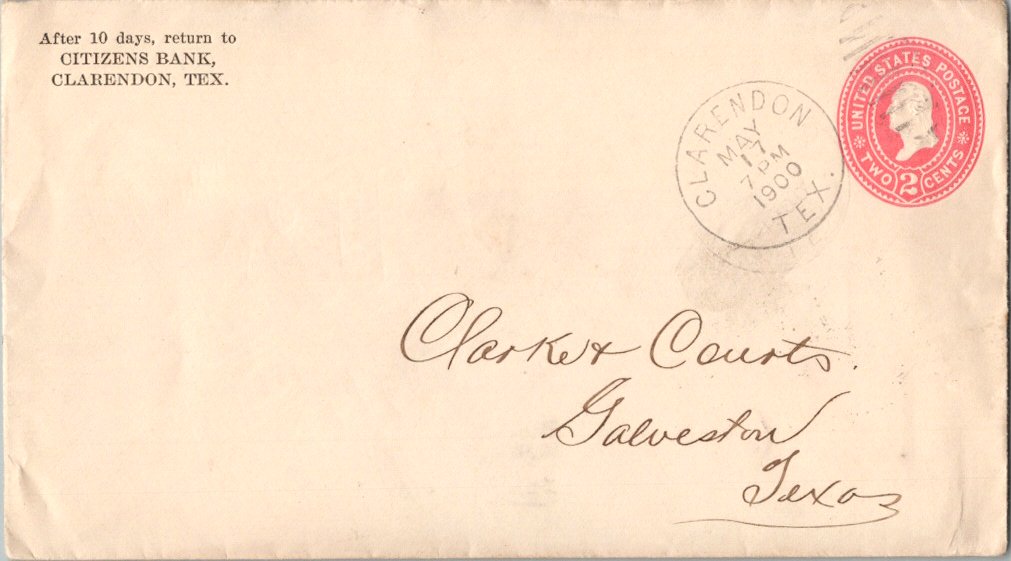 After 10 days, return to
CITIZENS BANK,
CLARENDON, TEX.
CLARENDON
MAY
17
7 PM
1900
TEX.
UNITED STATES POSTAGE
TWO 2 CENTS
Clarke & Courts.
Galveston
Texas